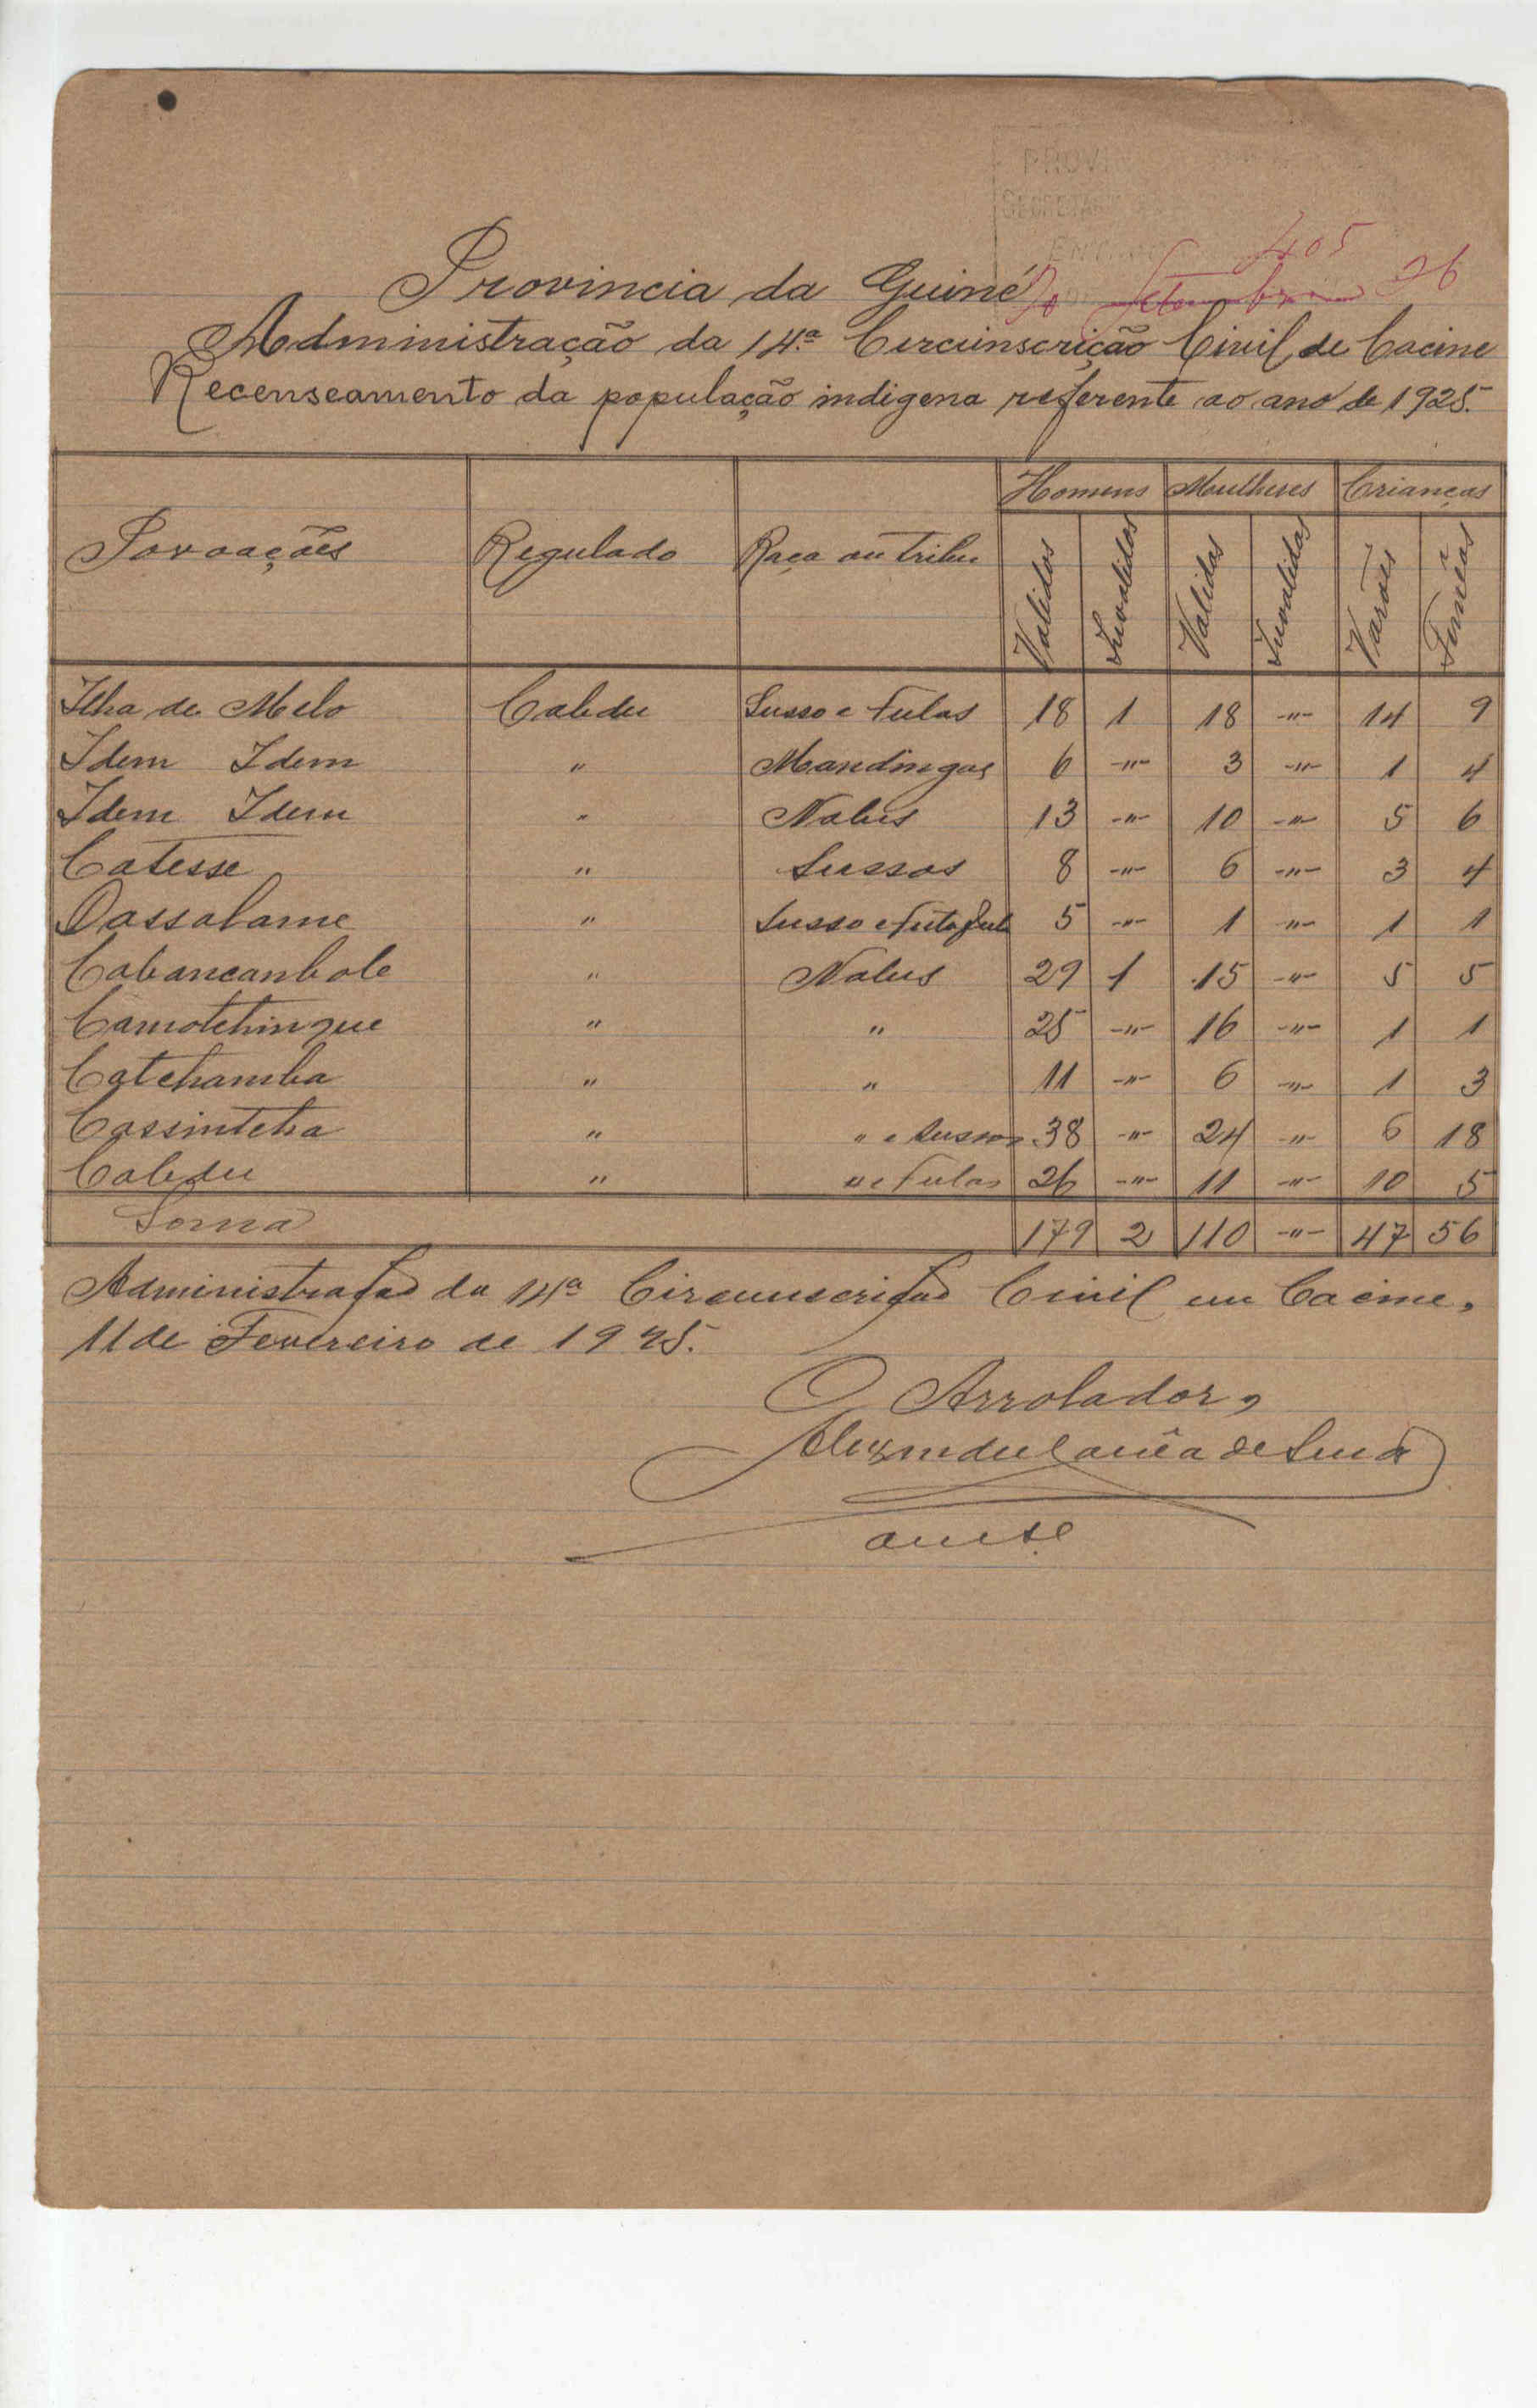 PROVIN
SECRETAR
ENT
405
Provincia da Guiné 20 Setembro 26
Administração da 14.ª Circunscrição Civil de Cacine
Recenseamento da população indigena referente ao ano de 1925.
Povoações Regulado Raça ou tribu Homens Mulheres Crianças
Validos Invalidos Validas Invalidas Varões Femeas
Ilha de Melo Cabedu Susso e Fulas 18 1 18 -"- 14 9
Idem Idem " Mandingas 6 -"- 3 -"- 1 4
Idem Idem " Nalus 13 -"- 10 -"- 5 6
Catesse " Sussos 8 -"- 6 -"- 3 4
Dassalame " Susso e futa ful 5 -"- 1 -"- 1 1
Cabancanbole " Nalus 29 1 15 -"- 5 5
Camotchingue " " 25 -"- 16 -"- 1 1
Catchamba " " 11 -"- 6 -"- 1 3
Cassintcha " " e Sussos 38 -"- 24 -"- 6 18
Cabedu " " e Fulas 26 -"- 11 -"- 10 5
Soma 179 2 110 -"- 47 56
Administração da 14ª Circunscrição Civil em Cacine,
11 de Fevereiro de 1925.
O Arrolador,